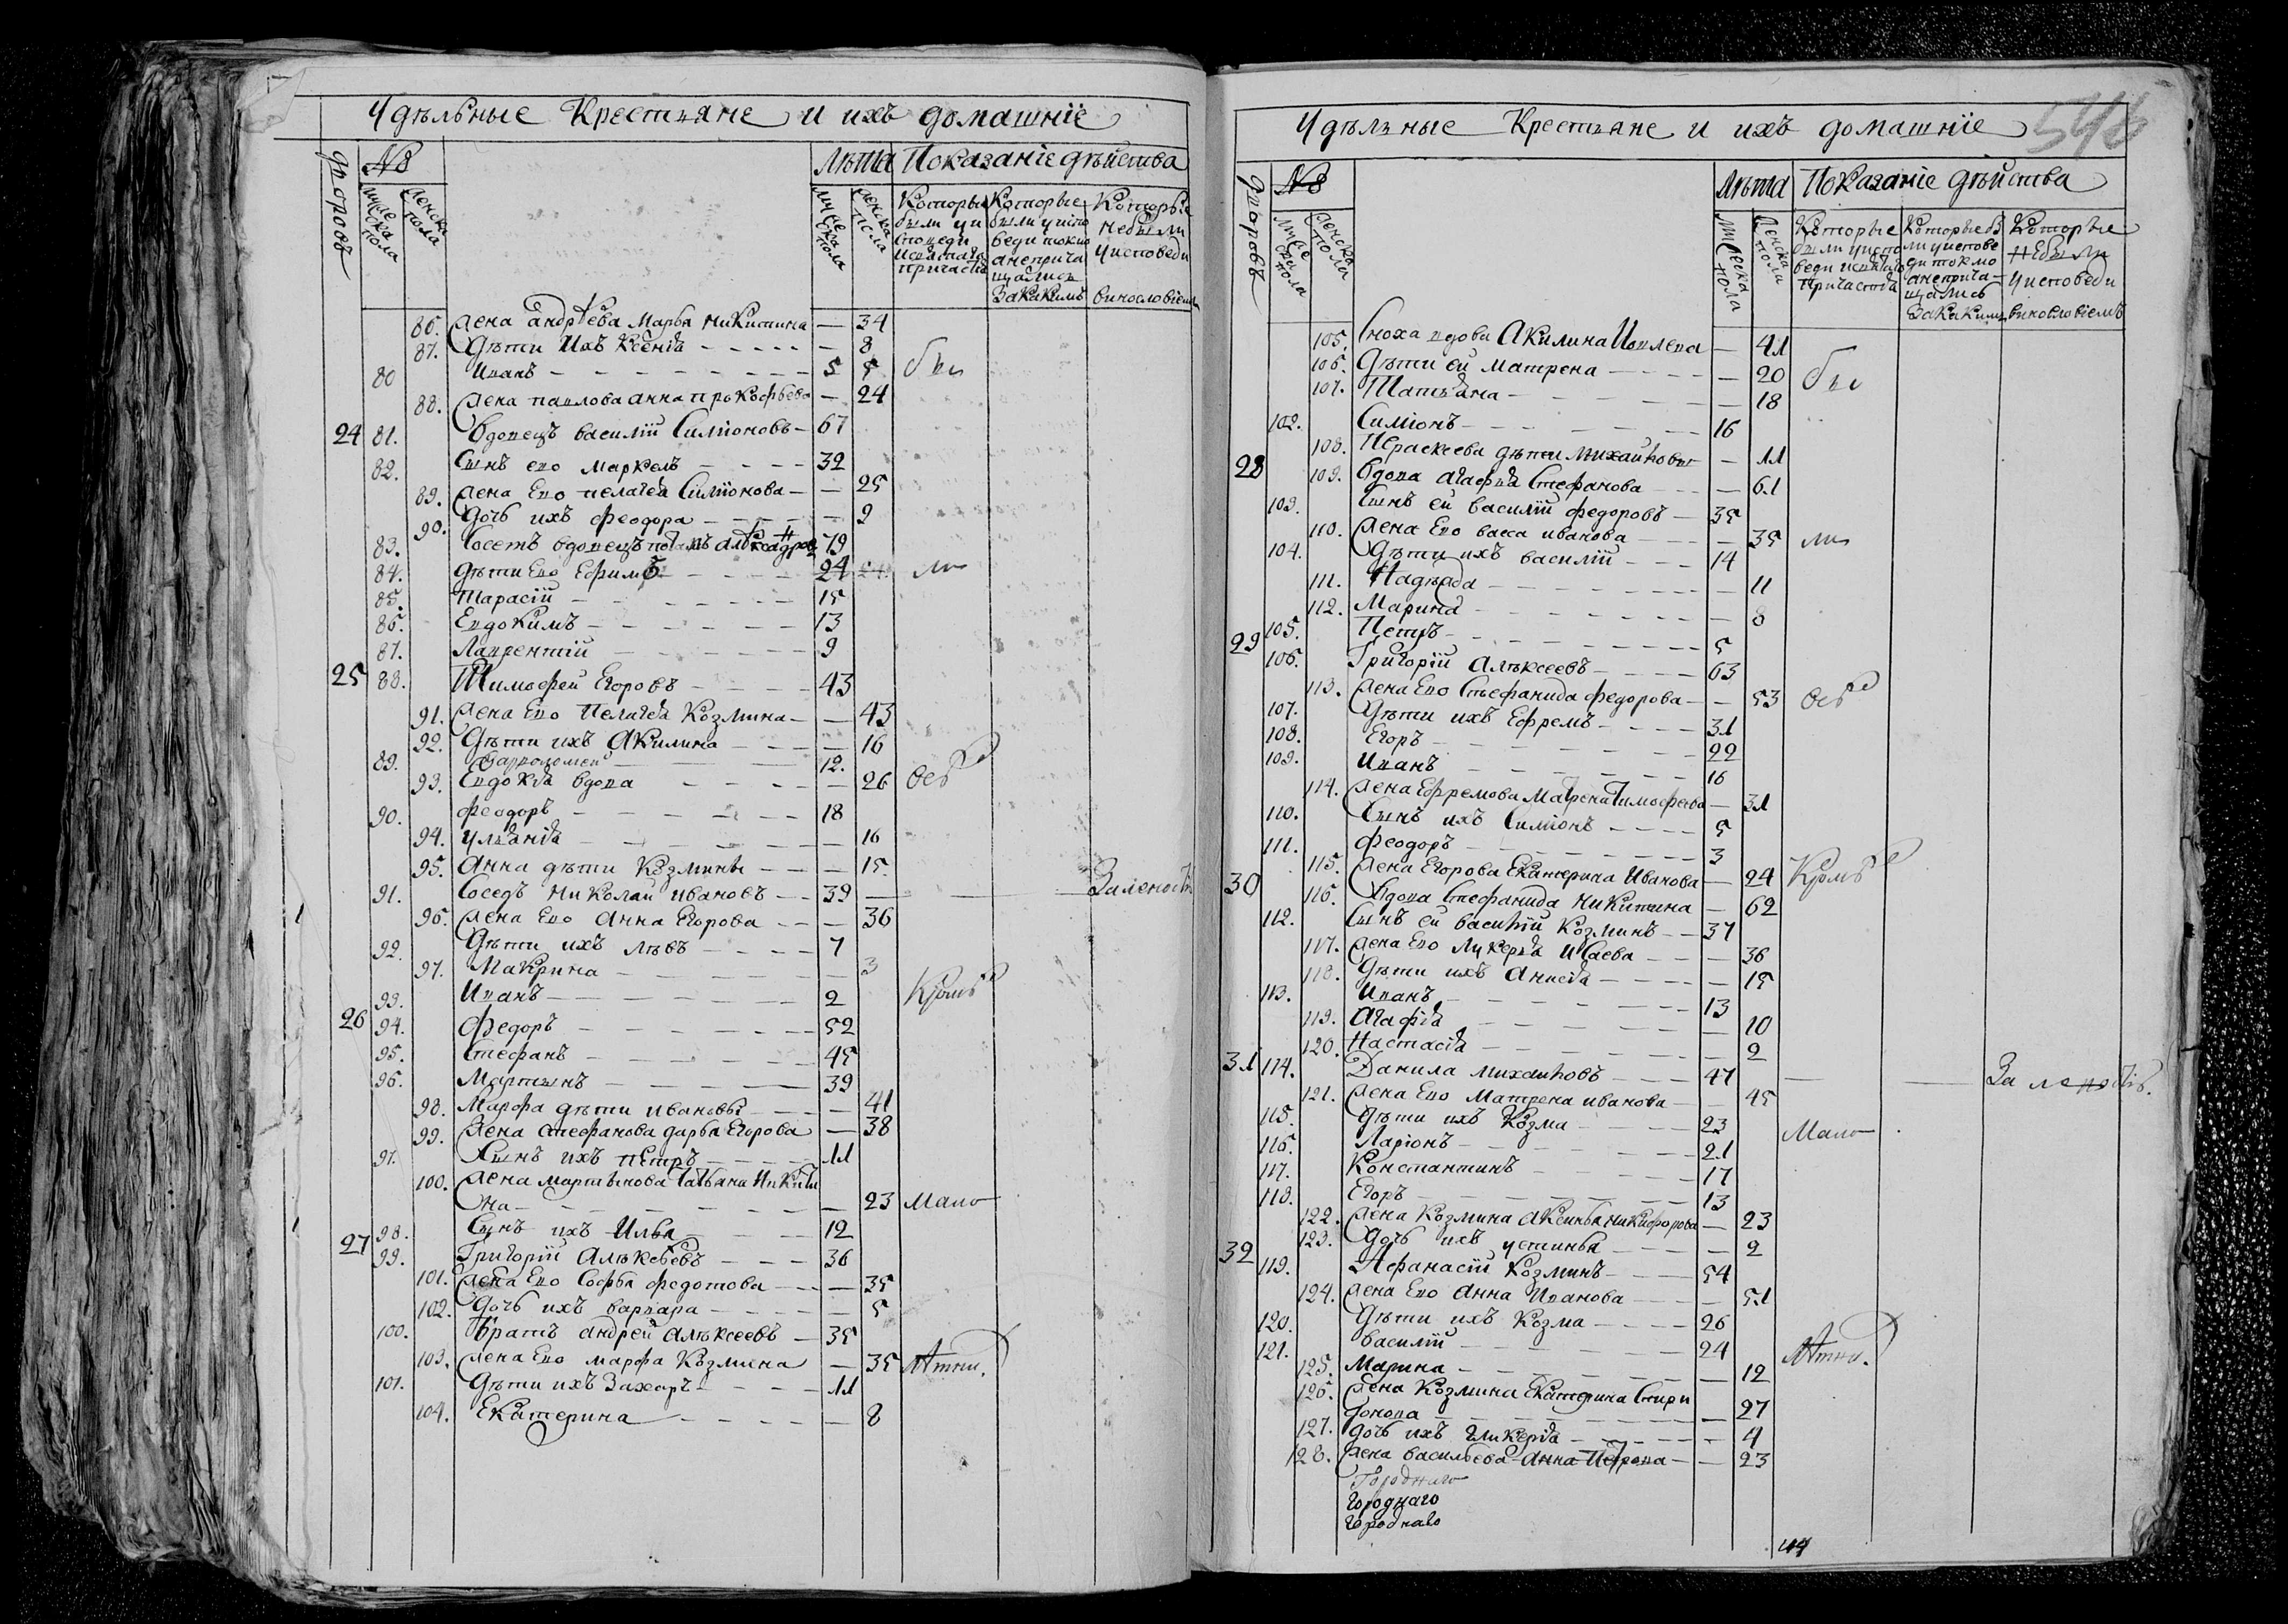 Удѣльные Крестьяне и ихъ домашніе
дворовъ
№
мужеска пола
женска пола
Лѣта
Показаніе дѣйства
мужеска пола
женска пола
Которые были у исповеди и святаго причастія
Которые были у исповеди токмо а не причащались
Которые не были у исповеди
за какимъ винословіемъ
86. Жена андрѣева Марья Никитина — 34
87. Дѣти Ихъ Ксенія — 8
80 Иванъ 5 5 бы
88. Жена павлова анна прокофьева — 24
24 81. Вдовецъ василій Симіоновъ 67
82. Сынъ ево маркелъ 32
89. Жена Ево пелагея Симіонова — 25
90. Дочь ихъ феодора — 2
83. Сосетъ вдовецъ 79
84. Дѣти Ево Ефимъ 24 ли
85. Тарасій 15
86. Евдокимъ 13
87. Лаврентій 9
25 88. Тимофей Егоровъ 43
91. Жена Ево Пелагея Козмина — 43
92. Дѣти ихъ Акилина — 16
89. Варфоломей 12.
93. Евдокія вдова — 26 всѣ
90. феодоръ 18
94. Ульянія — 16
95. Анна дѣти Козмины — 15.
91. Соседъ Николай ивановъ 39 — — За леностію
96. Жена Ево Анна Егорова — 36
92. Дѣти ихъ лѣвъ 7
97. Макрина — 3
93. Иванъ 2 Кромѣ
26 94. Федоръ 52
95. Стефанъ 45
96. Мартынъ 39
98. Марфа дѣти ивановы — 41
99. Жена стефанова дарья Егорова — 38
97. Сынъ ихъ пЕтръ 11
100. Жена мартынова Татьяна Никити
на — 23 Мало
98. Сынъ ихъ Илья 12
27 99. Григорій Алѣксѣевъ 36
101. Жена Ево Софья федотова — 35
102. Дочь ихъ варвара — 5
100. Братъ андрей Алѣксеевъ 35
103. Жена Ево марфа Козмина — 35 лѣтни.
101. Дѣти ихъ Захаръ 11
104. Екатерина — 8
546
Удѣльные Крестьяне и ихъ домашніе
дворовъ
№
мужеска пола
женска пола
Лѣта
Показаніе дѣйства
мужеска пола
женска пола
Которые были у исповеди и святаго причастія
Которые были у исповеди токмо а не причащались
Которые не были у исповеди
за какимъ винословіемъ
105. Сноха вдова Акилина Иовлева — 41
106. Дѣти ей матрена — 20 бы
107. Татьяна — 18
102. Симіонъ 16
108. Параскева дѣти михайловы — 11
28 109. Вдова агафія Стефанова — 61
103. Сынъ ей василій федоровъ 35
110. Жена Ево васа иванова — 35 ли
104. Дѣти ихъ василій 14
111. Надѣжда — 11
112. Марина — 8
105. Петръ 5
29 106. Григорій Алѣксеевъ 63
113. Жена Ево Стефанида федорова — 53 всѣ
107. Дѣти ихъ Ефремъ 31
108. Егоръ 22
109. Иванъ 16
114. Жена Ефремова Матрена Тимофеева — 31
110. Сынъ ихъ Симіонъ 5
111. феодоръ 3
115. Жена Егорова Екатерина Иванова — 24 Кромѣ
30 116. Вдова Стефанида никитина — 62
112. Сынъ ей василій Козминъ 37
117. Жена Ево Лукерья Исаева — 36
118. Дѣти ихъ Анисія — 15
113. Иванъ 13
119. Агафія — 10
120. Настасія — 2
31 114. Данила михайловъ 47 — — За леностію.
121. Жена Ево Матрена иванова — 45
115. Дѣти ихъ Козма 23
116. Ларіонъ 21 Мало
117. Константинъ 17
118. Егоръ 13
122. Жена Козмина Аксинья Никифорова — 23
123. Дочь ихъ устинья — 2
32 119. Афанасій Козминъ 54
124. Жена Ево Анна Иванова — 51
120. Дѣти ихъ Козма 26
121. василій 24 лѣтни.
125. Марина — 12
126. Жена Козмина Екатерина Спири
донова — 27
127. Дочь ихъ гликерія — 4
128. Жена васильева Анна Петрова — 23
Городнаго
Городнаго
Городнаго